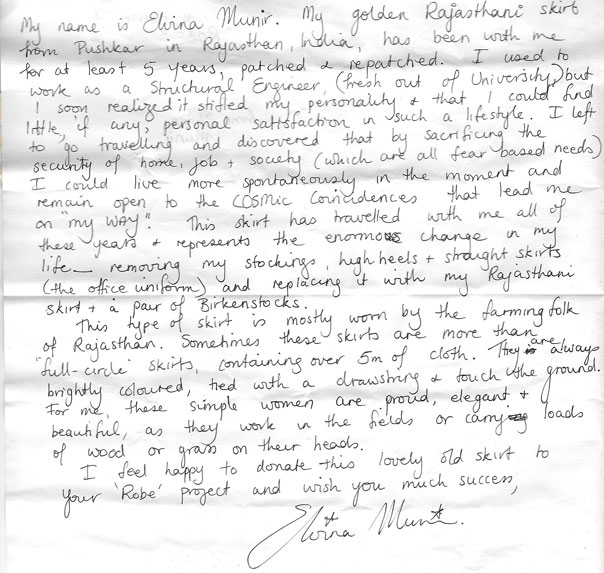 My name is Elvina Munir. My golden Rajasthani skirt
from Pushkar in Rajasthan, India, has been with me
for at least 5 years, patched & repatched. I used to
work as a Structural Engineer, (fresh out of University,) but
I soon realized it stifled my personality & that I could find
little, if any, personal satisfaction in such a lifestyle. I left
to go travelling and discovered that by sacrificing the
security of home, job + society (which are all fear based needs)
I could live more spontaneously in the moment and
remain open to the COSMIC Coincidences that lead me
on "my WAY". This skirt has travelled with me all of
these years & represents the enormous change in my
life — removing my stockings, high heels + straight skirts
(the office uniform) and replacing it with my Rajasthani
skirt + a pair of Birkenstocks.
This type of skirt is mostly worn by the farming folk
of Rajasthan. Sometimes these skirts are more than
"full-circle" skirts, containing over 5m of cloth. They are always
brightly coloured, tied with a drawstring & touch the ground.
For me, these simple women are proud, elegant &
beautiful, as they work in the fields or carrying loads
of wood or grass on their heads.
I feel happy to donate this lovely old skirt to
your 'Robe' project and wish you much success,
Elvina Munir.